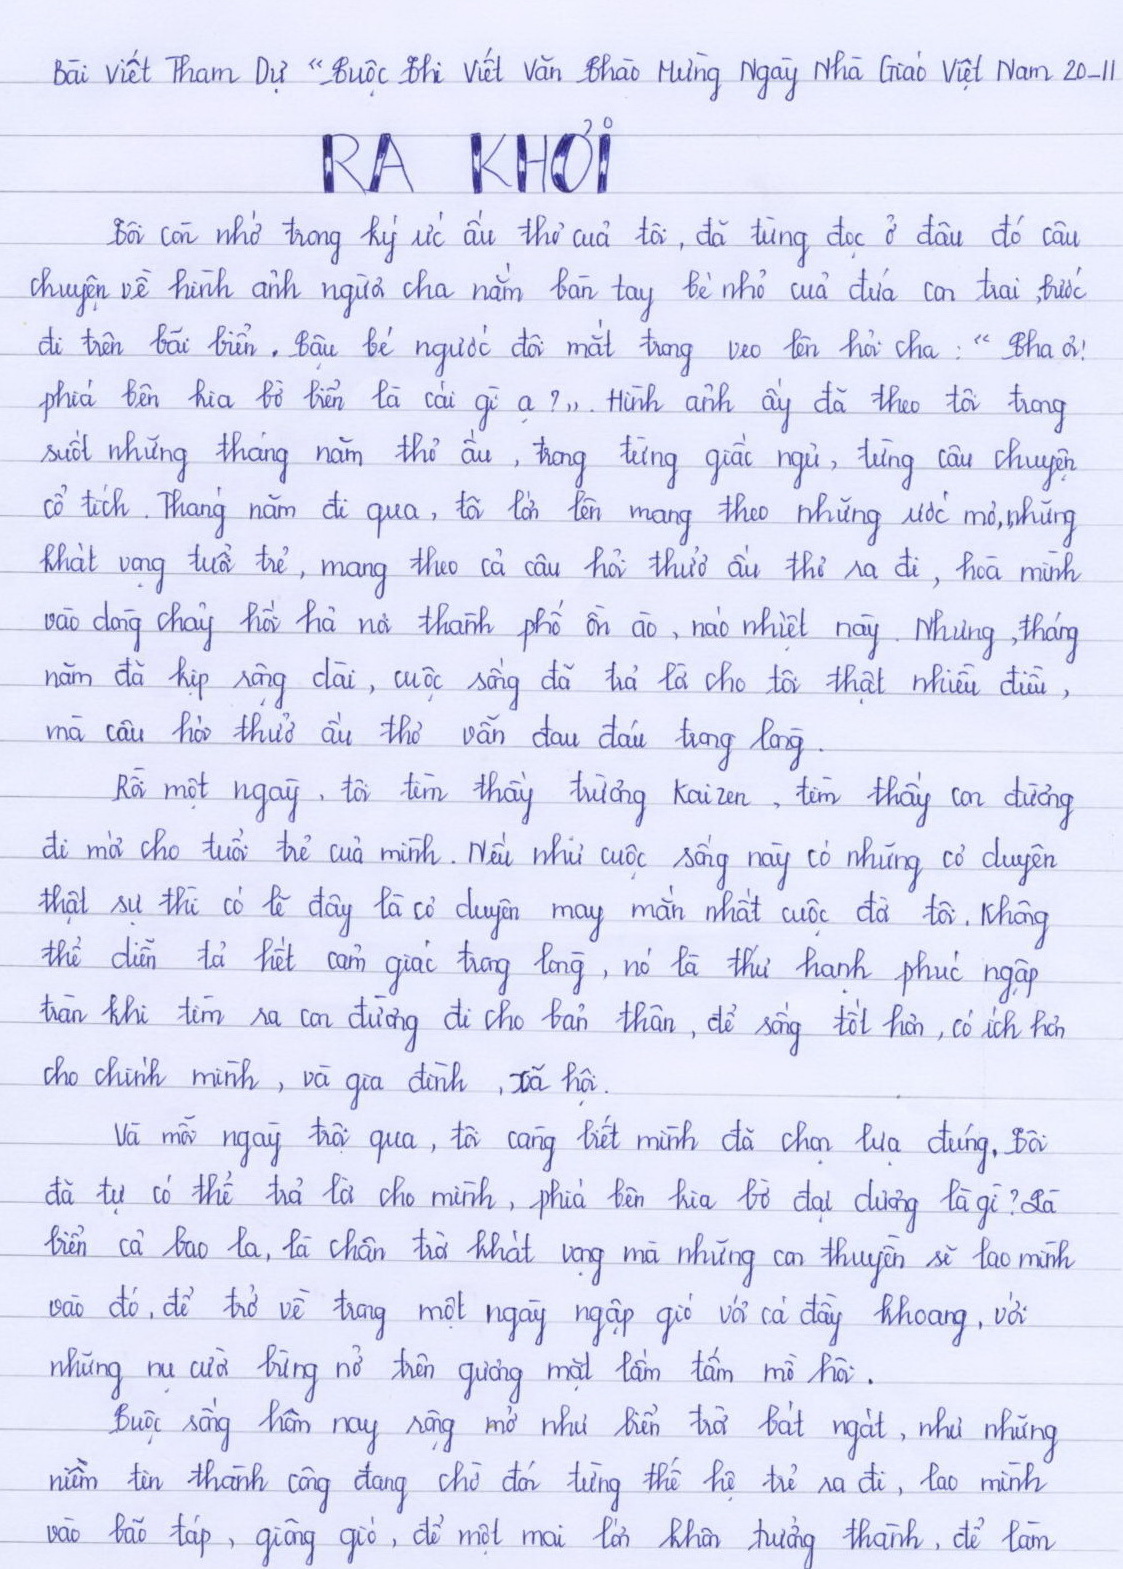 Bài Viết Tham Dự "Cuộc Thi Viết Văn Chào Mừng Ngày Nhà Giáo Việt Nam 20-11
RA KHƠI
Tôi còn nhớ trong ký ức ấu thơ của tôi, đã từng đọc ở đâu đó câu
chuyện về hình ảnh người cha nắm bàn tay bé nhỏ của đứa con trai, bước
đi trên bãi biển. Cậu bé ngước đôi mắt trong veo lên hỏi cha: "Cha ơi!
phía bên kia bờ biển là cái gì ạ?". Hình ảnh ấy đã theo tôi trong
suốt những tháng năm thơ ấu, trong từng giấc ngủ, từng câu chuyện
cổ tích. Tháng năm đi qua, tôi lớn lên mang theo những ước mơ, những
khát vọng tuổi trẻ, mang theo cả câu hỏi thuở ấu thơ ra đi, hoà mình
vào dòng chảy hối hả nơi thành phố ồn ào, náo nhiệt này. Nhưng, tháng
năm đã kịp rộng dài, cuộc sống đã trả lời cho tôi thật nhiều điều,
mà câu hỏi thuở ấu thơ vẫn đau đáu trong lòng.
Rồi một ngày, tôi tìm thấy trường Kaizen, tìm thấy con đường
đi mới cho tuổi trẻ của mình. Nếu như cuộc sống này có những cơ duyên
thật sự thì có lẽ đây là cơ duyên may mắn nhất cuộc đời tôi. Không
thể diễn tả hết cảm giác trong lòng, nó là thứ hạnh phúc ngập
tràn khi tìm ra con đường đi cho bản thân, để sống tốt hơn, có ích hơn
cho chính mình, và gia đình, xã hội.
Và mỗi ngày trôi qua, tôi càng biết mình đã chọn lựa đúng. Tôi
đã tự có thể trả lời cho mình, phía bên kia bờ đại dương là gì? Là
biển cả bao la, là chân trời khát vọng mà những con thuyền sẽ lao mình
vào đó, để trở về trong một ngày ngập gió với cá đầy khoang, với
những nụ cười bừng nở trên gương mặt lấm tấm mồ hôi.
Cuộc sống hôm nay rộng mở như biển trời bát ngát, như những
niềm tin thành công đang chờ đón từng thế hệ trẻ ra đi, lao mình
vào bão táp, giông gió, để một mai lớn khôn trưởng thành, để làm